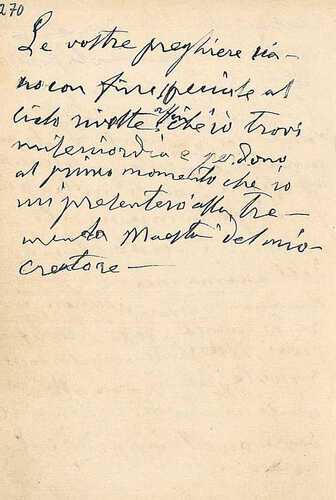 270
Le vostre preghiere sia-
no con
cielo rivolte affin che io trovi
misericordia e perdono
al primo momento che io
mi presenterò alla tre-
menda Maestà del mio
creatore —